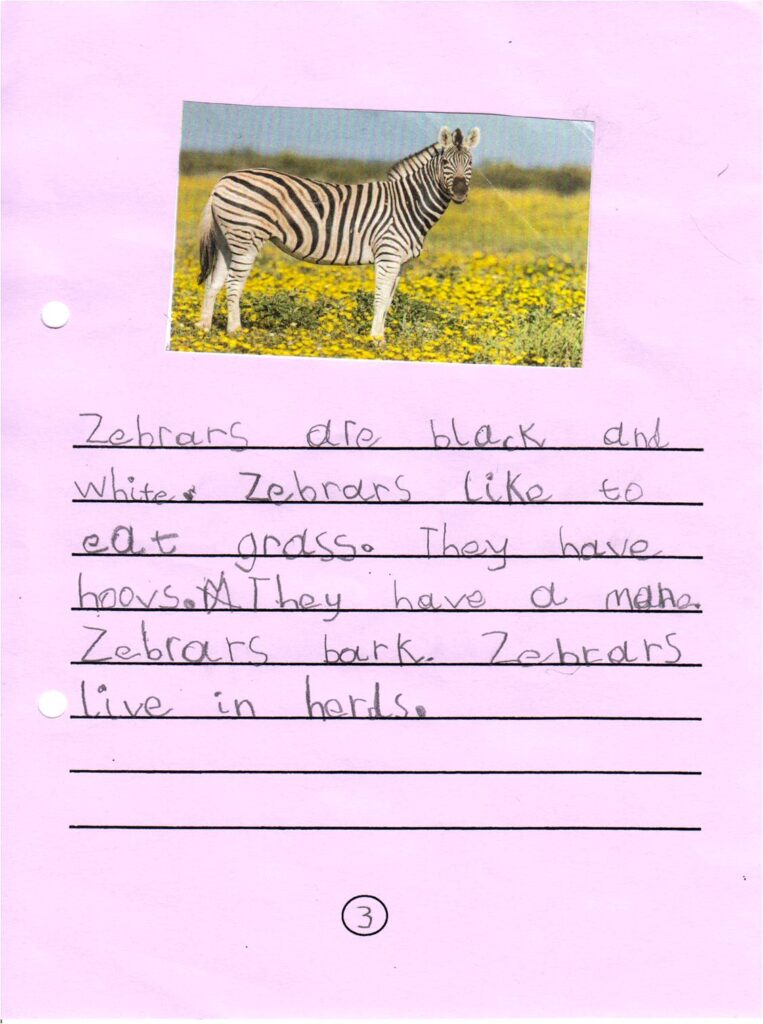 Zebrars are black and
white. Zebrars like to
eat grass. They have
hoovs. They have a mane.
Zebrars bark. Zebrars
live in herds.
3